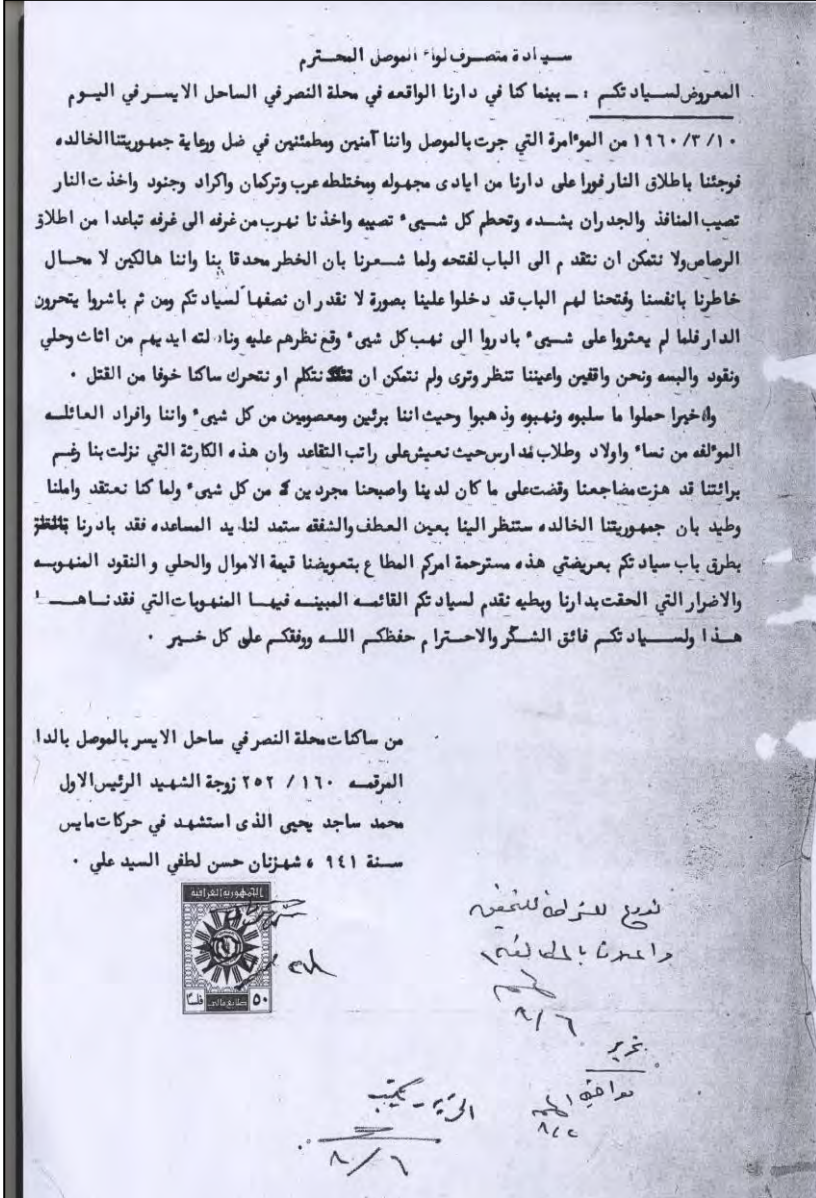 سيادة متصرف لواء الموصل المحترم
المعروض لسيادتكم : ــ بينما كنا في دارنا الواقعه في محلة النصر في الساحل الايسر في اليوم
١٩٦٠/٣/١٠ من الموٴامرة التي جرت بالموصل واننا آمنين ومطمئنين في ضل ورعاية جمهوريتنا الخالده
فوجئنا باطلاق النار فورا على دارنا من ايادى مجهوله ومختلطه عرب وتركمان واكراد وجنود واخذت النار
تصيب المنافذ والجدران بشده وتحطم كل شيىء تصيبه واخذنا نهرب من غرفه الى غرفه تباعدا من اطلاق
الرصاص ولا نتمكن ان نتقدم الى الباب لفتحه ولما شعرنا بان الخطر محدقا بنا واننا هالكين لا محال
خاطرنا بانفسنا وفتحنا لهم الباب قد دخلوا علينا بصورة لا نقدر ان نصفها لسيادتكم ومن ثم باشروا يتحرون
الدار فلما لم يعثروا على شيىء بادروا الى نهب كل شيىء وقع نظرهم عليه ونالته ايديهم من اثاث وحلي
ونقود والبسه ونحن واقفين واعيننا تنظر وترى ولم نتمكن ان نتكلم او نتحرك ساكنا خوفا من القتل ٠
واخيرا حملوا ما سلبوه ونهبوه وذهبوا وحيث اننا برئين ومعصومين من كل شيىء واننا وافراد العائله
الموٴلفه من نساء واولاد وطلاب مدارس حيث نعيش على راتب التقاعد وان هذه الكارثة التي نزلت بنا رغم
برائتنا قد هزت مضاجعنا وقضت على ما كان لدينا واصبحنا مجردين من كل شيىء ولما كنا نعتقد واملنا
وطيد بان جمهوريتنا الخالده ستنظر الينا بعين العطف والشفقه ستمد لنا يد المساعده فقد بادرنا
بطرق باب سيادتكم بعريضتي هذه مسترحمة امركم المطاع بتعويضنا قيمة الاموال والحلي و النقود المنهوبه
والاضرار التي الحقت بدارنا وبطيه نقدم لسيادتكم القائمه المبينه فيها المنهوبات التي فقدناها
هذا ولسيادتكم فائق الشكر والاحترام حفظكم الله ووفقكم على كل خير ٠
من ساكنات محلة النصر في ساحل الايسر بالموصل بالدا
المرقمه ١٦٠ / ٢٥٢ زوجة الشهيد الرئيس الاول
محمد ساجد يحيى الذى استشهد في حركات مايس
سنة ٩٤١ ه شهزنان حسن لطفي السيد علي ٠
الجمهورية العراقية
٥٠ طابع مالي فلسا
٨/٦
٨/٦